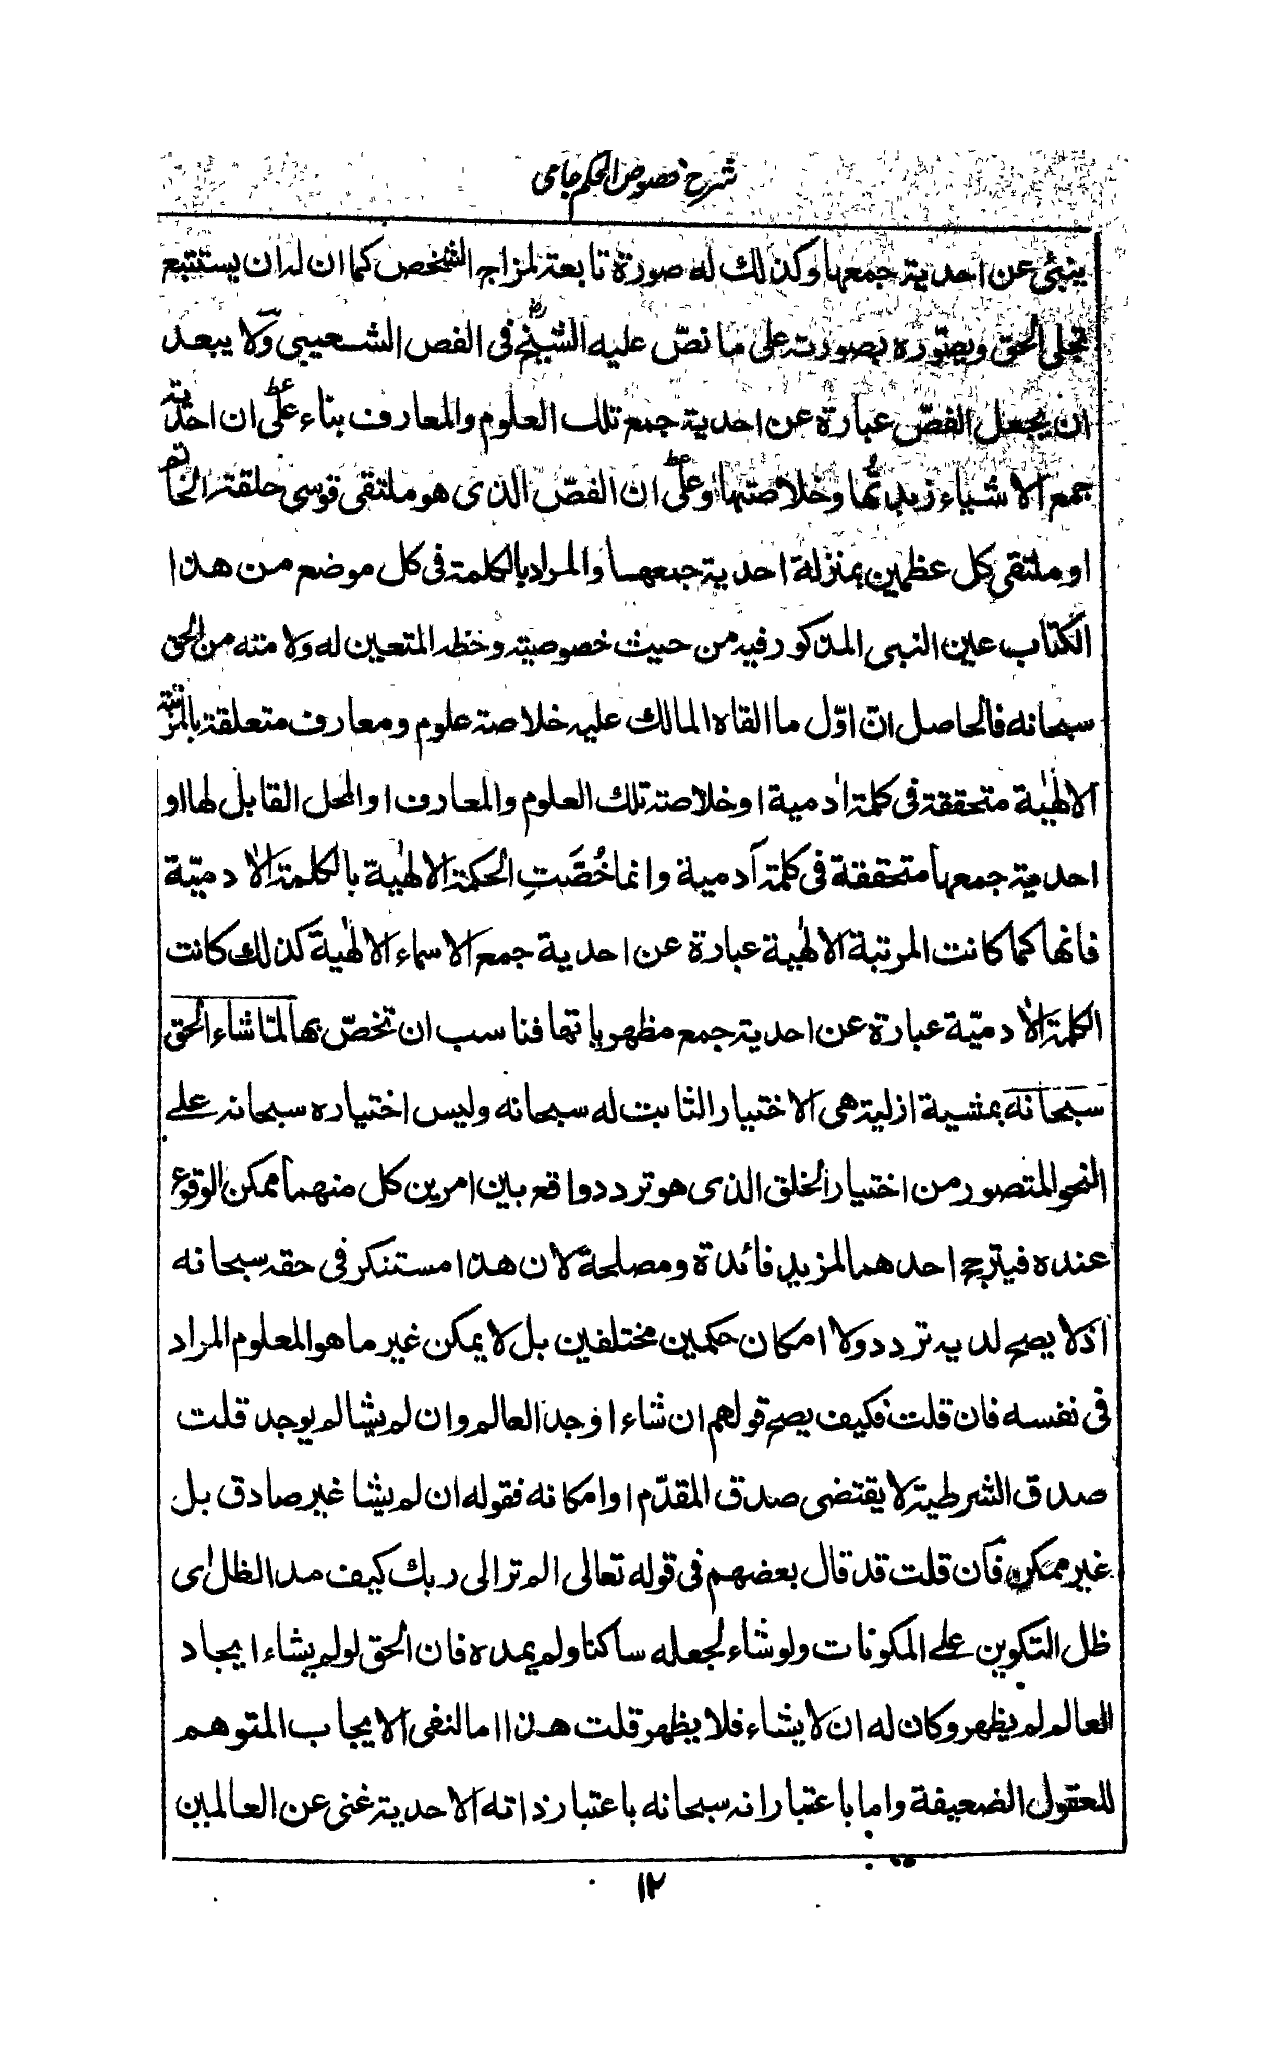 شرح فصوص الحكم جامى
ينبئ عن احدية جمعها وكذلك له صورة تابعة لمزاج الشخص كما ان له ان يستتبع
تجلى الحق ويصوّره بصورته على ما نصّ عليه الشيخ رض فى الفص الشعيبى ولا يبعد
ان يجعل الفصّ عبارة عن احدية جمع تلك العلوم والمعارف بناء على ان احدية
جمع الاشياء زبدتها وخلاصتها وعلى ان الفصّ الذى هو ملتقى قوسى حلقة الخاتم
او ملتقى كل عظمين بمنزلة احدية جمعهما والمراد بالكلمة فى كل موضع من هذا
الكتاب عين النبى المذكور فيه من حيث خصوصيته وحظه المتعين له ولامته من الحق
سبحانه فالحاصل انّ اوّل ما القاه المالك عليه خلاصة علوم ومعارف متعلقة بالمرتبة
الالٰهية متحققة فى كلمة اٰدمية اوخلاصة تلك العلوم والمعارف او المحل القابل لها او
احدية جمعها متحققة فى كلمة آدمية وانما خُصَّتِ الحكمة الالٰهية بالكلمة الاٰدميّة
فانها كما كانت المرتبة الالٰهية عبارة عن احدية جمع الاسماء الالٰهية كذلك كانت
الكلمة الاٰدميّة عبارة عن احدية جمع مظهرياتها فناسب ان تخصّ بها لمّا شاء الحق
سبحانه بمشية ازلية هى الاختيار الثابت له سبحانه وليس اختياره سبحانه على
النحو المتصور من اختيار الخلق الذى هو تردد واقع بين امرين كل منهما ممكن الوقوع
عنده فيترجح احدهما لمزيد فائدة ومصلحة لان هذا مستنكر فى حقه سبحانه
اذ لا يصح لديه تردد ولا امكان حكمين مختلفين بل لا يمكن غير ما هو المعلوم المراد
فى نفسه فان قلت فكيف يصح قولهم ان شاء اوجد العالم وان لم يشا لم يوجد قلت
صدق الشرطية لا يقتضى صدق المقدّم او امكانه فقوله ان لم يشا غير صادق بل
غير ممكن فان قلت قد قال بعضهم فى قوله تعالى الم تر الى ربك كيف مد الظل اى
ظل التكوين على المكونات ولو شاء لجعله ساكنا ولم يمده فان الحق لو لم يشاء ايجاد
العالم لم يظهر وكان له ان لا يشاء فلا يظهر قلت هذا اما لنفى الايجاب المتوهم
للعقول الضعيفة واما باعتبار انه سبحانه باعتبار ذاته الاحدية غنى عن العالمين
١٢